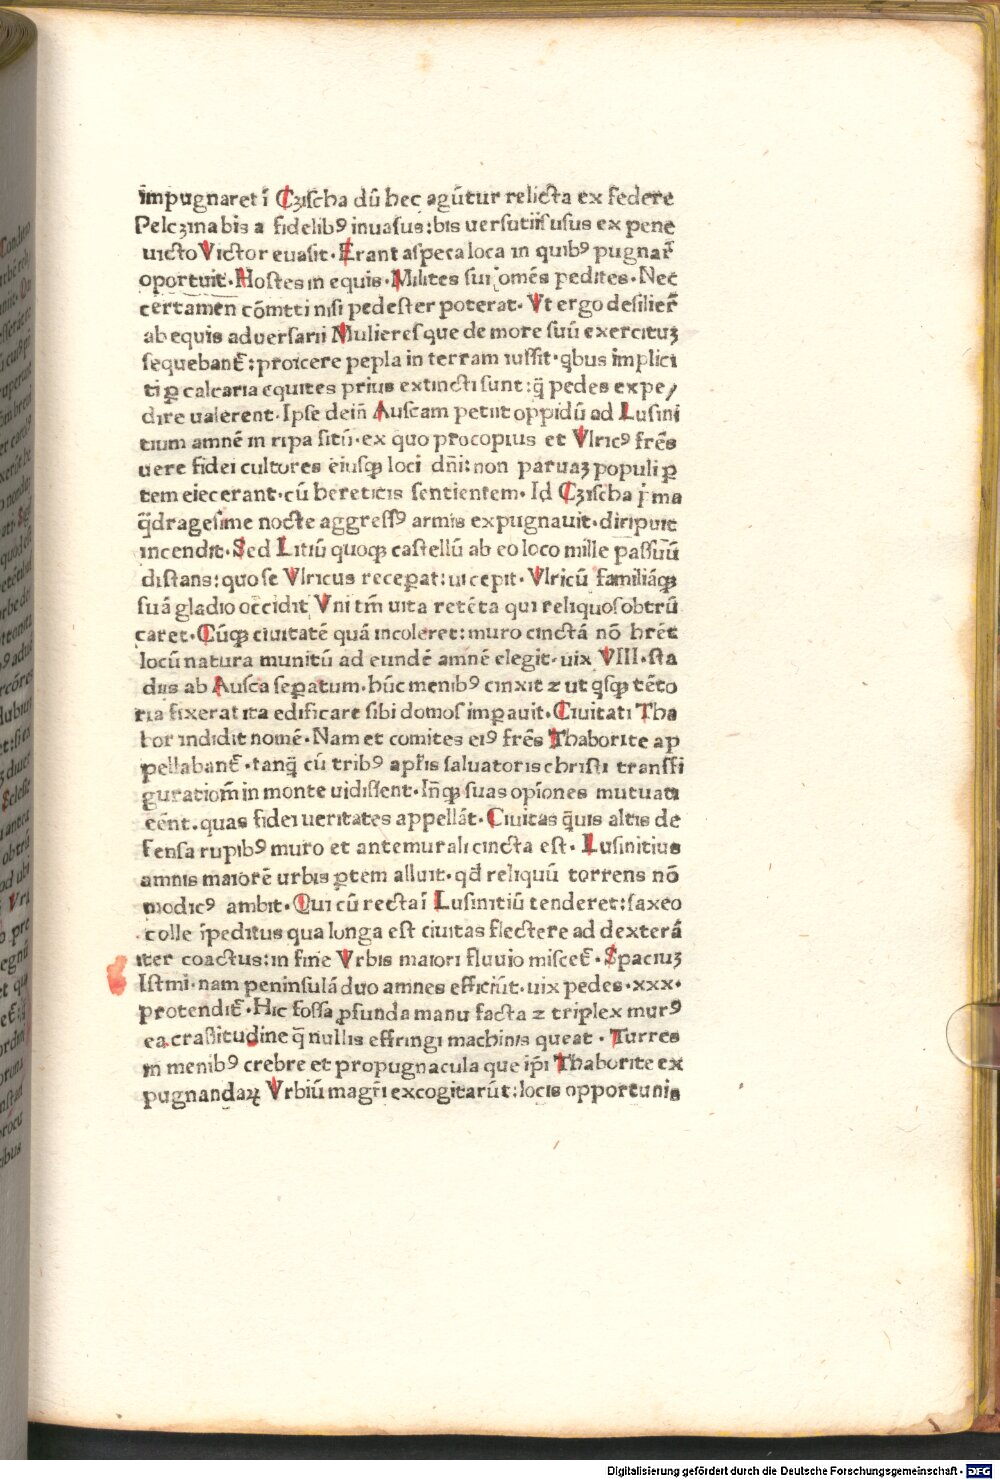 impugnaret ī Cziſcha dū hec agūtur relicta ex federe
Pelczina bis a fidelibꝰ inuaſus:bis uerſutiiſ uſus ex pene
uicto Victor euaſit. Erant aſpera loca in quibꝰ pugnar̄
oportuit. Hoſtes in equis. Milites ſui omēs pedites. Nec
certamen cōmtti niſi pedeſter poterat. Vt ergo deſilier̄
ab equis aduerſarii Mulieres que de more ſuū exercituꝫ
ſequebant̄: proicere pepla in terram iuſſit. qbus implici
ti ꝑ calcaria equites prius extincti ſunt: q̄ pedes expe/
dire ualerent. Ipſe dein̄ Auſcam petiit oppidū ad Luſini
tium amnē in ripa ſitū. ex quo procopius et Vlricꝰ frēs
uere fidei cultores eiuſqꝫ loci dn̄i: non paruaꝫ populi ꝑ
tem eiecerant. cū hereticis ſentientem. Id Cziſcha p̄ma
q̄drageſime nocte aggreſſꝰ armis expugnauit. diripuit
incendit. Sed Litiū quoqꝫ caſtellū ab eo loco mille paſſuū
diſtans: quo ſe Vlricus receꝑat: ui cepit. Vlricū familiāqꝫ
ſuā gladio occidit Vni tm̄ uita retēta qui reliquoſ obtrū
caret. Cūqꝫ ciuitatē quā incoleret: muro cinctā nō hrēt
locū natura munitū ad eundē amnē elegit. uix VIII. ſta
diis ab Auſca ſeꝑatum. hūc menibꝰ cinxit ⁊ ut qſqꝫ tēto
ria fixerat ita edificare ſibi domoſ imꝑauit. Ciuitati Tha
bor indidit nomē. Nam et comites eiꝰ frēs Thaborite ap
pellabant̄. tanq̄ cū tribꝰ apl̄is ſaluatoris chriſti tranſfi
guratiom̄ in monte uidiſſent. In̄qꝫ ſuas opīones mutuati
eēnt. quas fidei ueritates appellāt. Ciuitas q̄uis altis de
fenſa rupibꝰ muro et antemurali cincta eſt. Luſinitius
amnis maiorē urbis ꝑtem alluit. qd̄ reliquū torrens nō
modicꝰ ambit. Qui cū recta ī Luſinitiū tenderet: ſaxeo
colle īpeditus qua longa eſt ciuitas flectere ad dexterā
iter coactus: in fine Vrbis maiori fluuio miſcet̄. Spaciuꝫ
Iſtmi. nam peninſulā duo amnes efficiūt. uix pedes. xxx.
protendit̄. Hic foſſa ꝓfunda manu facta ⁊ triplex murꝰ
ea craſſitudine q̄ nullis effringi machinis queat. Turres
in menibꝰ crebre et propugnacula que ip̄i Thaborite ex
pugnandaꝝ Vrbiū magr̄i excogitarūt: locis opportunis
Digitalisierung gefördert durch die Deutsche Forschungsgemeinschaft - DFG